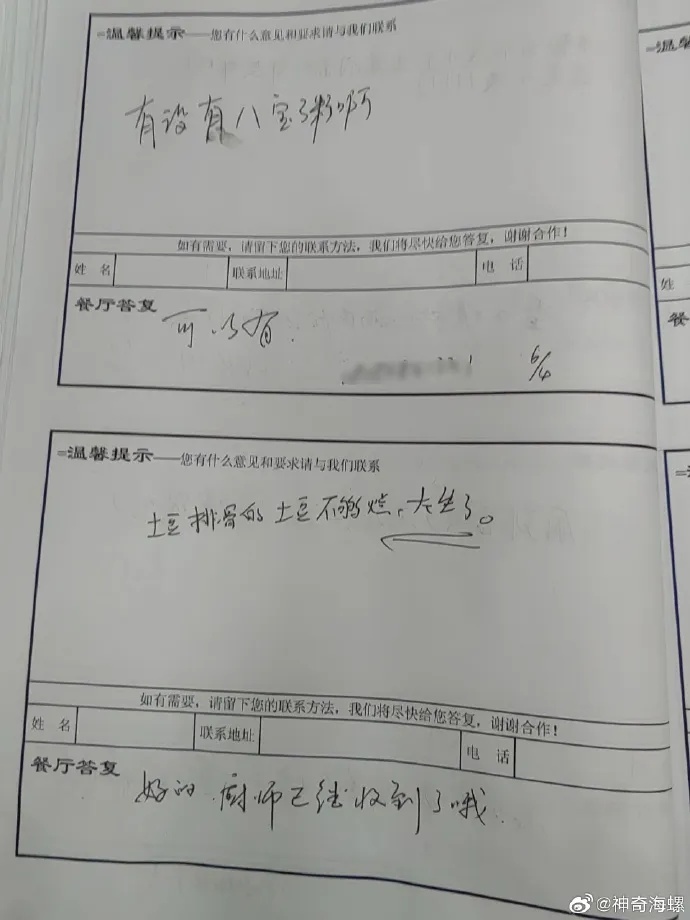 =温馨提示——您有什么意见和要求请与我们联系
有没有八宝粥啊
如有需要，请留下您的联系方法，我们将尽快给您答复，谢谢合作！
姓 名 联系地址 电 话
餐厅答复
可以有.
6/4
=温馨提示——您有什么意见和要求请与我们联系
土豆排骨的土豆不够烂，太生了。
如有需要，请留下您的联系方法，我们将尽快给您答复，谢谢合作！
姓 名 联系地址 电 话
餐厅答复
好的 厨师已经收到了哦.
=温
姓
餐
=温
@神奇海螺